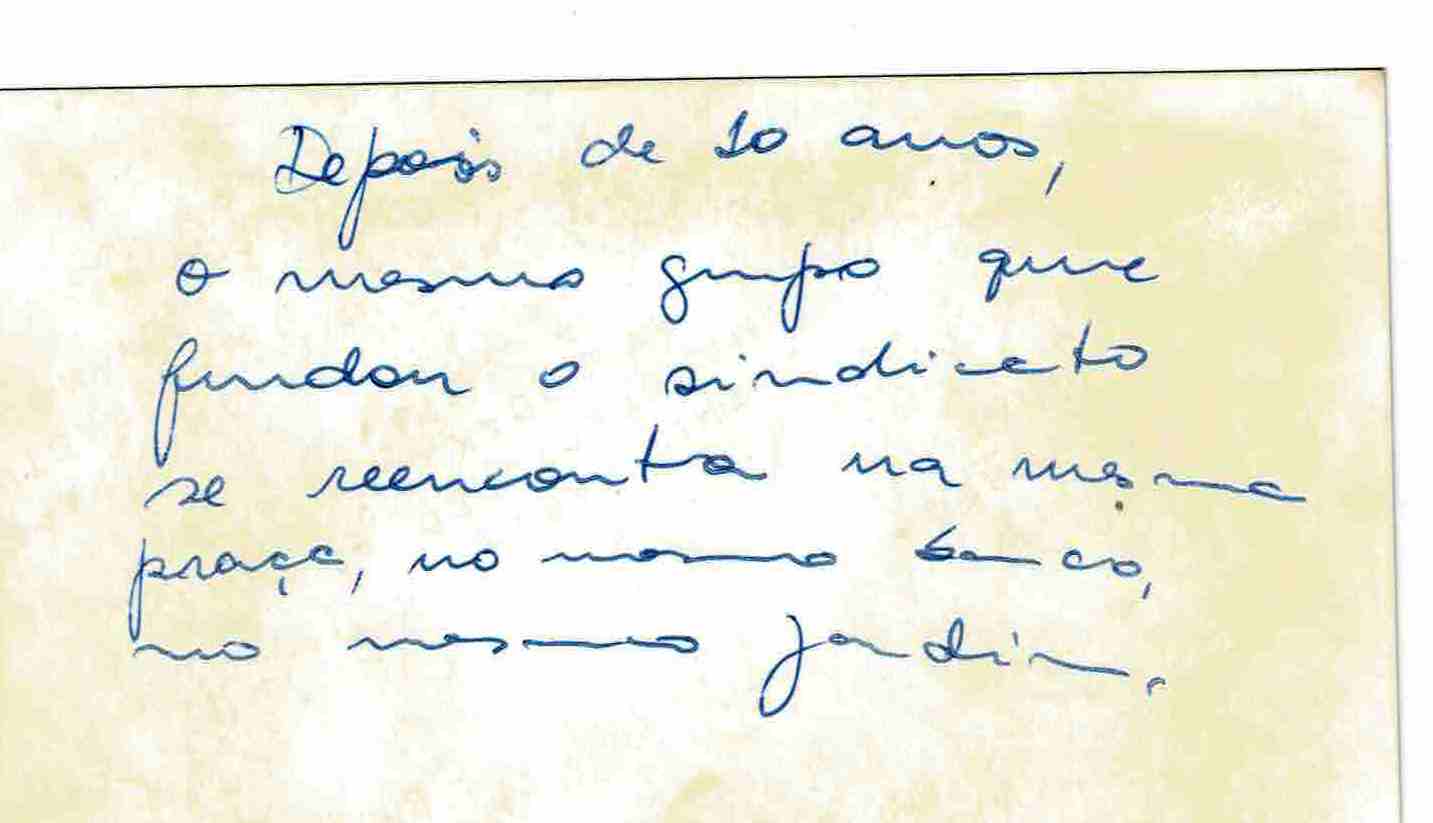 Depois de 10 anos,
o mesmo grupo que
fundou o sindicato
se reencontra na mesma
praça, no mesmo banco,
no mesmo jardim.